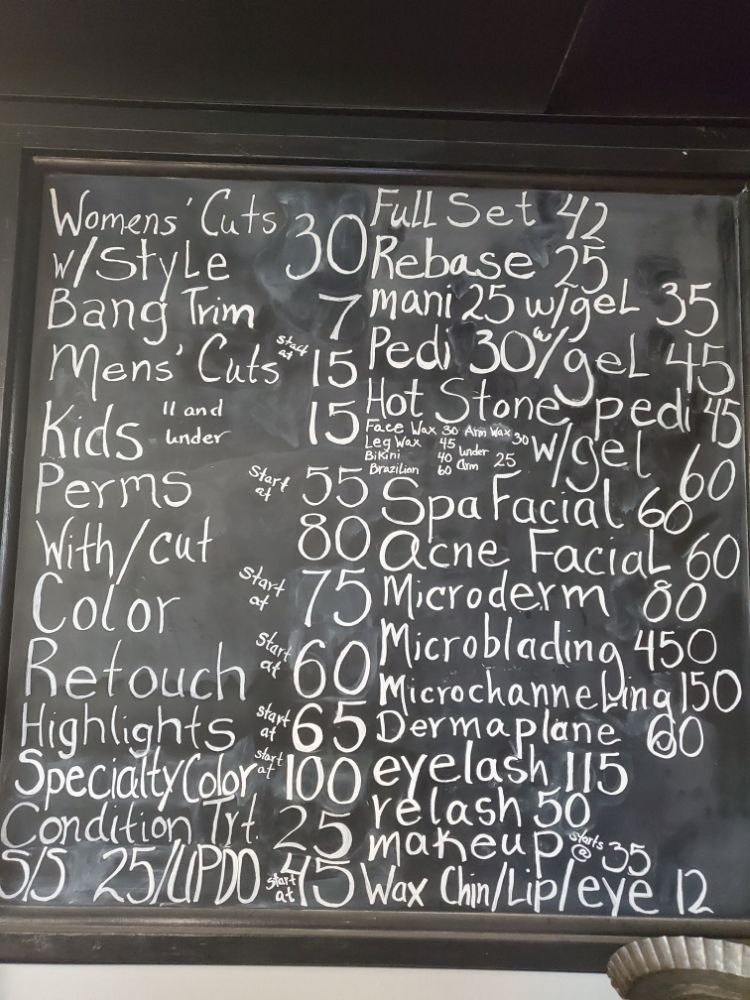 Womens' Cuts
w/Style 30
Bang Trim 7
Mens' Cuts start at 15
Kids 11 and under 15
Perms start at 55
With/cut 80
Color start at 75
Retouch start at 60
Highlights start at 65
Specialty Color start at 100
Condition Trt. 25
S/S 25/UPDO start at 45
Full Set 42
Rebase 25
mani 25 w/gel 35
Pedi 30 w/gel 45
Hot Stone pedi 45
w/gel 60
Face Wax 30 Arm Wax 30
Leg Wax 45 under arm 25
Bikini 40
Brazilian 60
Spa Facial 60
Acne Facial 60
Microderm 80
Microblading 450
Microchanneling 150
Dermaplane 60
eyelash 115
relash 50
makeup starts @ 35
Wax Chin/Lip/eye 12